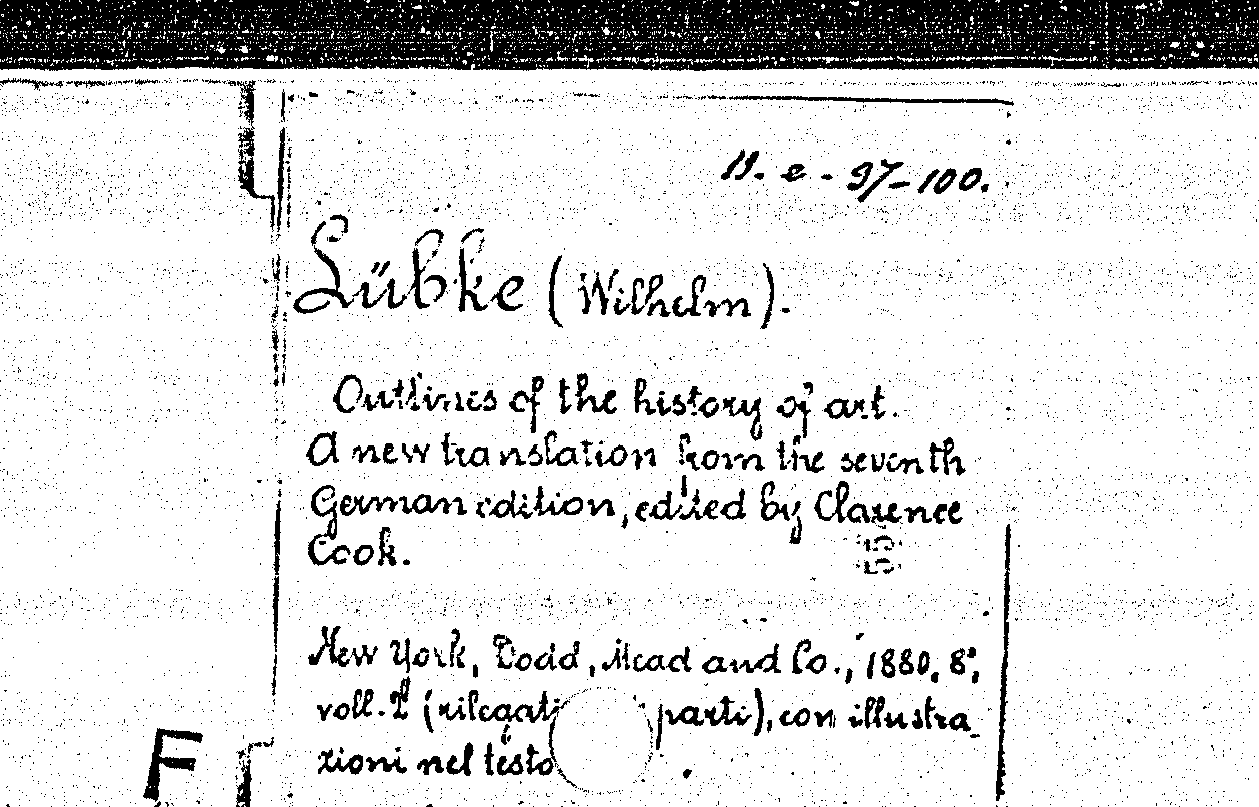 19. e - 97-100.
Lübke (Wilhelm).
Outlines of the history of art.
A new translation from the seventh
German edition, edited by Clarence
Cook.
55
New York, Dodd, Mead and Co., 1880, 8°,
voll. 2 (rilegati parti), con illustra_
zioni nel testo
F